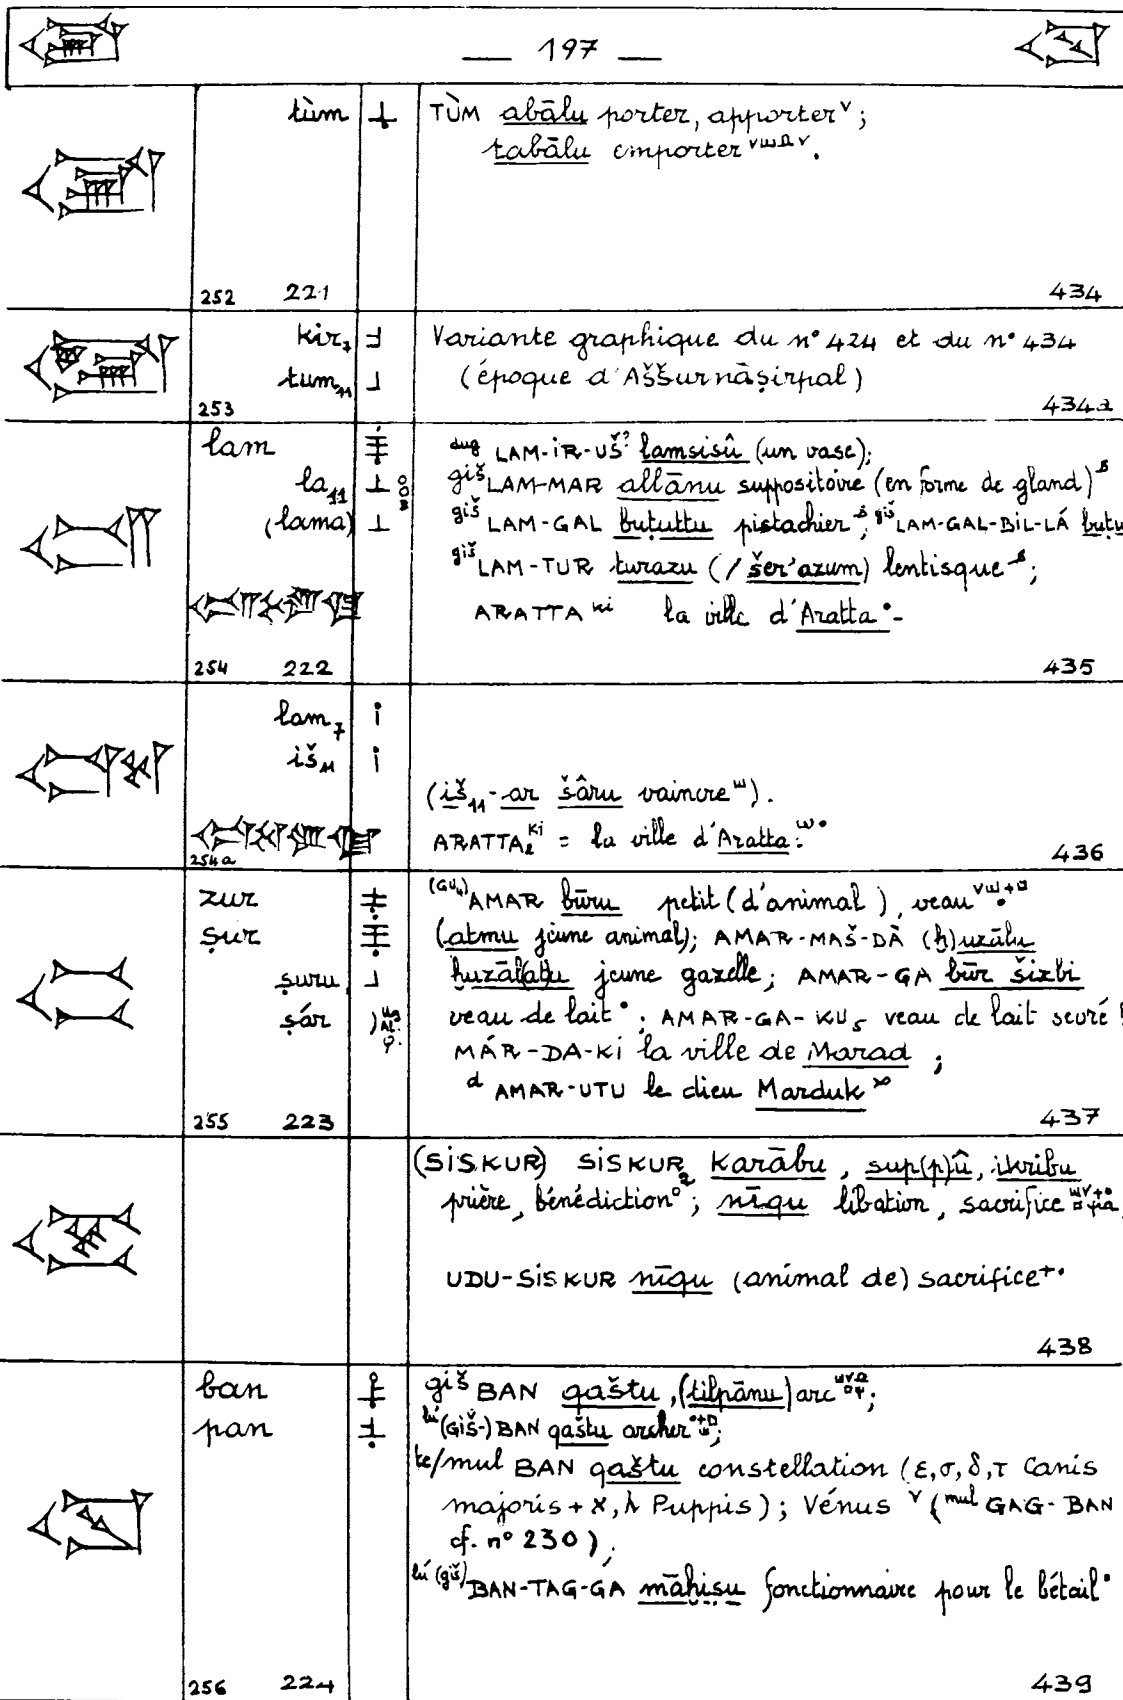 — 197 —
tùm TÙM abālu porter, apporter ᵛ;
tabālu emporter
252 221 434
kir₇ Variante graphique du n° 424 et du n° 434
tum₁₁ (époque d'Aššurnāṣirpal)
253 434a
lam dug LAM-IR-UŠ? lamsisû (un vase);
la₁₁ giš LAM-MAR allānu suppositoire (en forme de gland)
(lama) giš LAM-GAL buṭuttu pistachier; giš LAM-GAL-BIL-LÁ buṭu
giš LAM-TUR turazu (/šer'azum) lentisque;
ARATTA ki la ville d'Aratta
254 222 435
lam₇
iš₁₁
(iš₁₁-ar šâru vaincre).
ARATTA₂ ki = la ville d'Aratta
254a 436
zur (GU₄) AMAR būru petit (d'animal), veau
ṣur (atmu jeune animal); AMAR-MAŠ-DÀ (ḫ)uzālu
ṣuru ḫuzālatu jeune gazelle; AMAR-GA būr šizbi
ṣár veau de lait; AMAR-GA-KU₅ veau de lait sevré
MÁR-DA-KI la ville de Marad;
d AMAR-UTU le dieu Marduk
255 223 437
(SISKUR) SISKUR₂ karābu, sup(p)û, ikribu
prière, bénédiction; nīqu libation, sacrifice
UDU-SISKUR nīqu (animal de) sacrifice
438
ban giš BAN qaštu, (tilpānu) arc;
pan lú (GIŠ-) BAN qaštu archer;
te/mul BAN qaštu constellation (ε, σ, δ, τ Canis
majoris + χ, λ Puppis); Vénus ᵛ (mul GAG-BAN
cf. n° 230);
lú (giš) BAN-TAG-GA māḫiṣu fonctionnaire pour le bétail
256 224 439